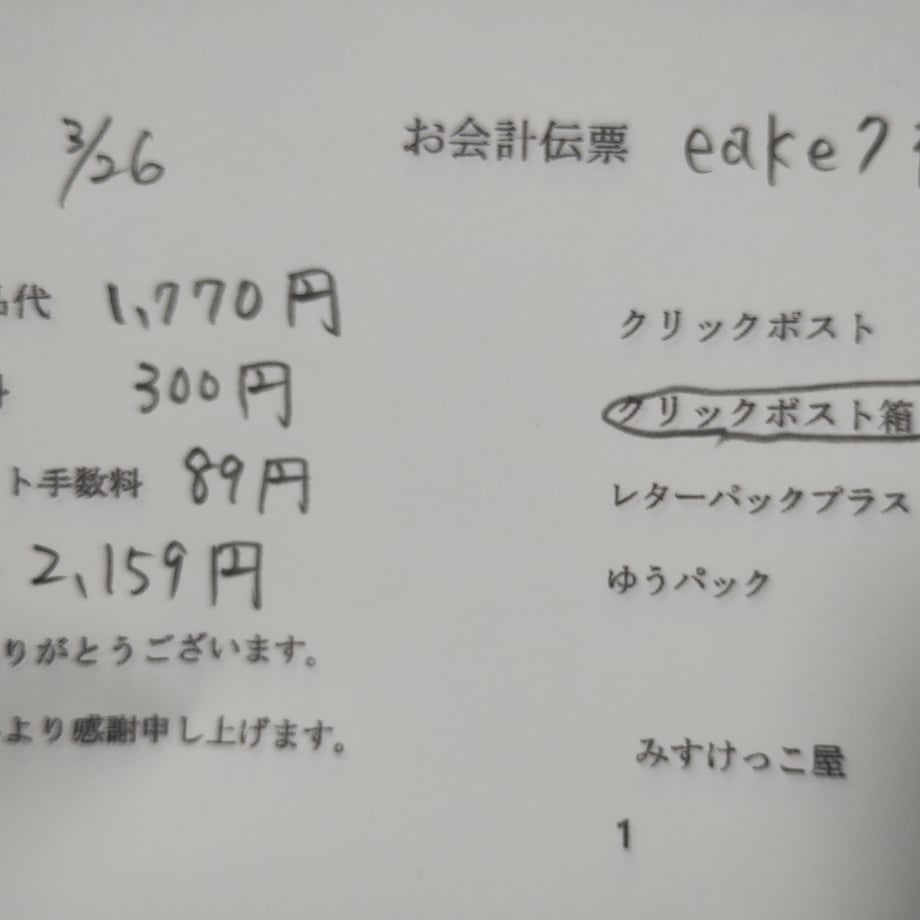 3/26
お会計伝票 eake7
代 1,770円
300円
ト手数料 89円
2,159円
りがとうございます。
より感謝申し上げます。
クリックポスト
クリックポスト箱
レターパックプラス
ゆうパック
みすけっこ屋
1